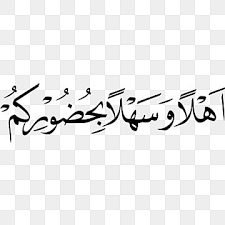 اَهْلاً وَ سَهْلاً بِحُضُوْرِكُمْ